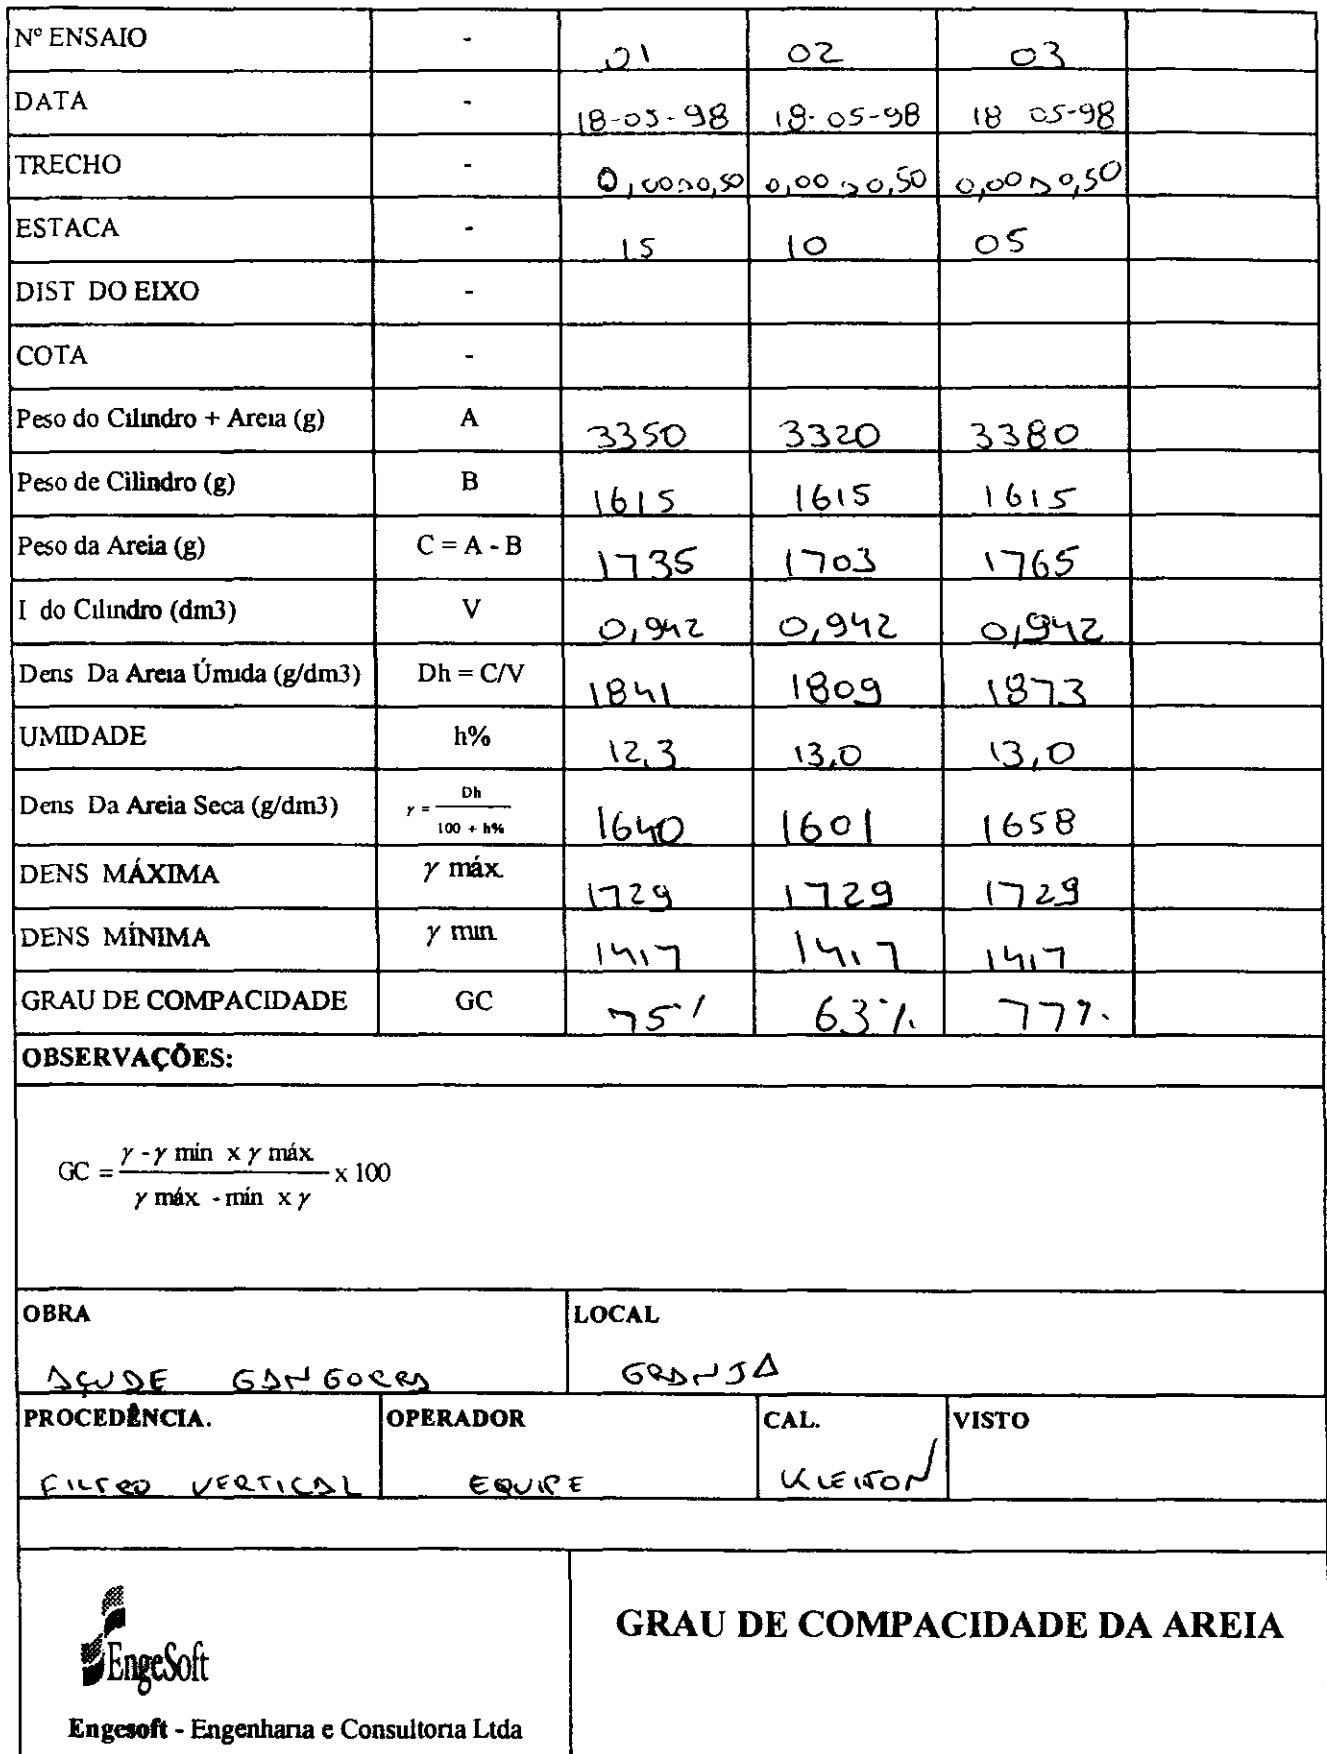 Nº ENSAIO - 01 02 03
DATA - 18-05-98 18-05-98 18 05-98
TRECHO - 0,00 a 0,50 0,00 a 0,50 0,00 a 0,50
ESTACA - 15 10 05
DIST DO EIXO -
COTA -
Peso do Cilindro + Areia (g) A 3350 3320 3380
Peso de Cilindro (g) B 1615 1615 1615
Peso da Areia (g) C = A - B 1735 1703 1765
I do Cilindro (dm3) V 0,942 0,942 0,942
Dens Da Areia Úmida (g/dm3) Dh = C/V 1841 1809 1873
UMIDADE h% 12,3 13,0 13,0
Dens Da Areia Seca (g/dm3) γ = Dh / 100 + h% 1640 1601 1658
DENS MÁXIMA γ máx. 1729 1729 1729
DENS MÍNIMA γ min 1417 1417 1417
GRAU DE COMPACIDADE GC 75% 63% 77%
OBSERVAÇÕES:
GC = γ - γ mín x γ máx. / γ máx. - mín x γ x 100
OBRA LOCAL
AÇUDE GANGORRA GRANJA
PROCEDÊNCIA. OPERADOR CAL. VISTO
FILTRO VERTICAL EQUIPE KLEITON
EngeSoft
GRAU DE COMPACIDADE DA AREIA
Engesoft - Engenharia e Consultoria Ltda